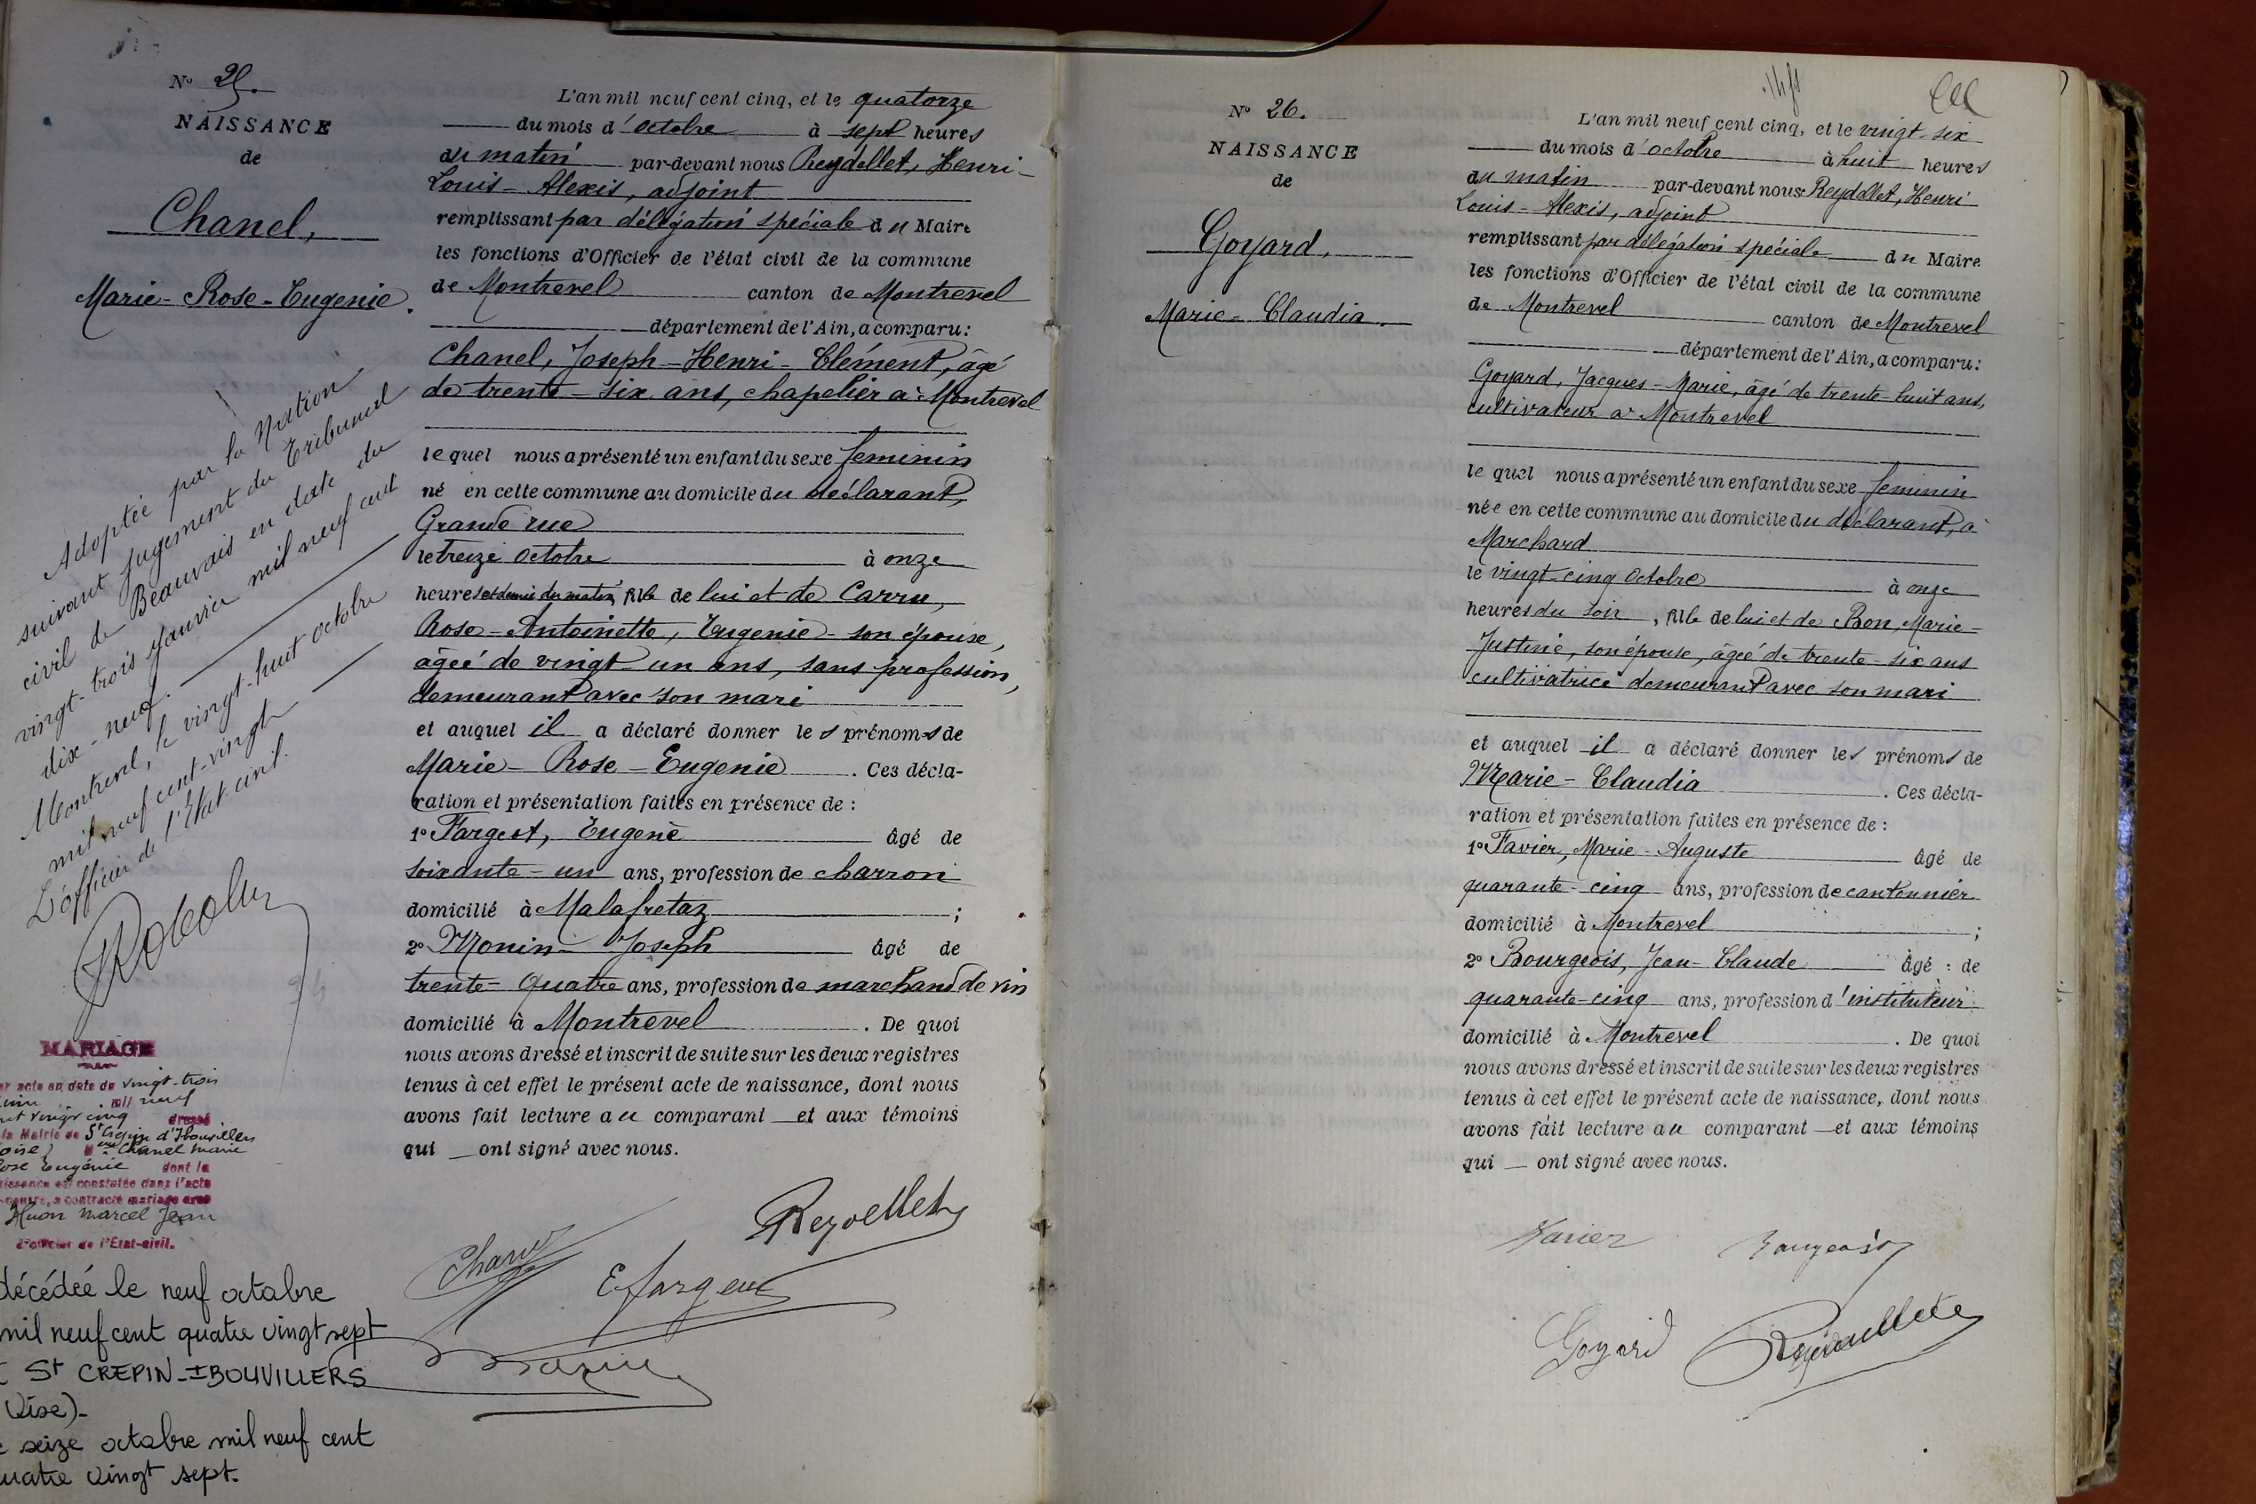 N° 25.
NAISSANCE
de
Chanel,
Marie-Rose-Eugenie.
Adoptée par la Nation
suivant jugement du Tribunal
civil de Beauvais en date du
vingt-trois janvier mil neuf cent
dix-neuf.
Montrevel, le vingt-huit octobre
mil neuf cent-vingt
L'officier de l'Etat civil.
MARIAGE
acte en date du vingt-trois
mil neuf
vingt cinq dressé
la Mairie de St Crépin d'Ibouvillers
Oise) Chanel Marie
Rose Eugénie dont la
naissance est constatée dans l'acte
contracté mariage avec
Huon Marcel Jean
l'Officier de l'Etat-civil.
décédée le neuf octobre
mil neuf cent quatre vingt sept
St CREPIN-IBOUVILLERS
(Oise)-
seize octobre mil neuf cent
quatre vingt sept.
L'an mil neuf cent cinq, et le quatorze
du mois d'octobre à sept heures
du matin par-devant nous Reydellet, Henri-
Louis-Alexis, adjoint
remplissant par délégation spéciale du Maire
les fonctions d'Officier de l'état civil de la commune
de Montrevel canton de Montrevel
département de l'Ain, a comparu:
Chanel, Joseph-Henri-Clément, âgé
de trente-six ans, chapelier à Montrevel
lequel nous a présenté un enfant du sexe feminin
né en cette commune au domicile du déclarant,
Grande rue
le treize octobre à onze
heures et demie du matin, fille de lui et de Carru,
Rose-Antoinette, Eugenie-son épouse,
âgée de vingt un ans, sans profession,
demeurant avec son mari
et auquel il a déclaré donner les prénoms de
Marie-Rose-Eugenie. Ces décla-
ration et présentation faites en présence de :
1° Farget, Eugene âgé de
soixante-un ans, profession de charron
domicilié à Malafretaz ;
2° Monin Joseph âgé de
trente-quatre ans, profession de marchand de vin
domicilié à Montrevel. De quoi
nous avons dressé et inscrit de suite sur les deux registres
tenus à cet effet le présent acte de naissance, dont nous
avons fait lecture au comparant et aux témoins
qui ont signé avec nous.
Reydellet
Chanel
E farget
Monin
N° 26.
NAISSANCE
de
Goyard,
Marie-Claudia.
L'an mil neuf cent cinq, et le vingt-six
du mois d'octobre à huit heures
du matin par-devant nous Reydellet, Henri
Louis-Alexis, adjoint
remplissant par délégation spéciale du Maire
les fonctions d'Officier de l'état civil de la commune
de Montrevel canton de Montrevel
département de l'Ain, a comparu:
Goyard, Jacques-Marie, âgé de trente-huit ans,
cultivateur à Montrevel
lequel nous a présenté un enfant du sexe feminin
née en cette commune au domicile du déclarant, à
Marchard
le vingt-cinq octobre à onze
heures du soir, fille de lui et de Bon, Marie-
Justine, son épouse, âgée de trente-six ans
cultivatrice demeurant avec son mari
et auquel il a déclaré donner les prénoms de
Marie-Claudia. Ces décla-
ration et présentation faites en présence de :
1° Favier, Marie-Auguste âgé de
quarante-cinq ans, profession de cantonnier
domicilié à Montrevel ;
2° Bourgeois, Jean-Claude âgé : de
quarante-cinq ans, profession d'instituteur
domicilié à Montrevel. De quoi
nous avons dressé et inscrit de suite sur les deux registres
tenus à cet effet le présent acte de naissance, dont nous
avons fait lecture au comparant et aux témoins
qui ont signé avec nous.
Favier Bourgeois
Goyard Reydellet